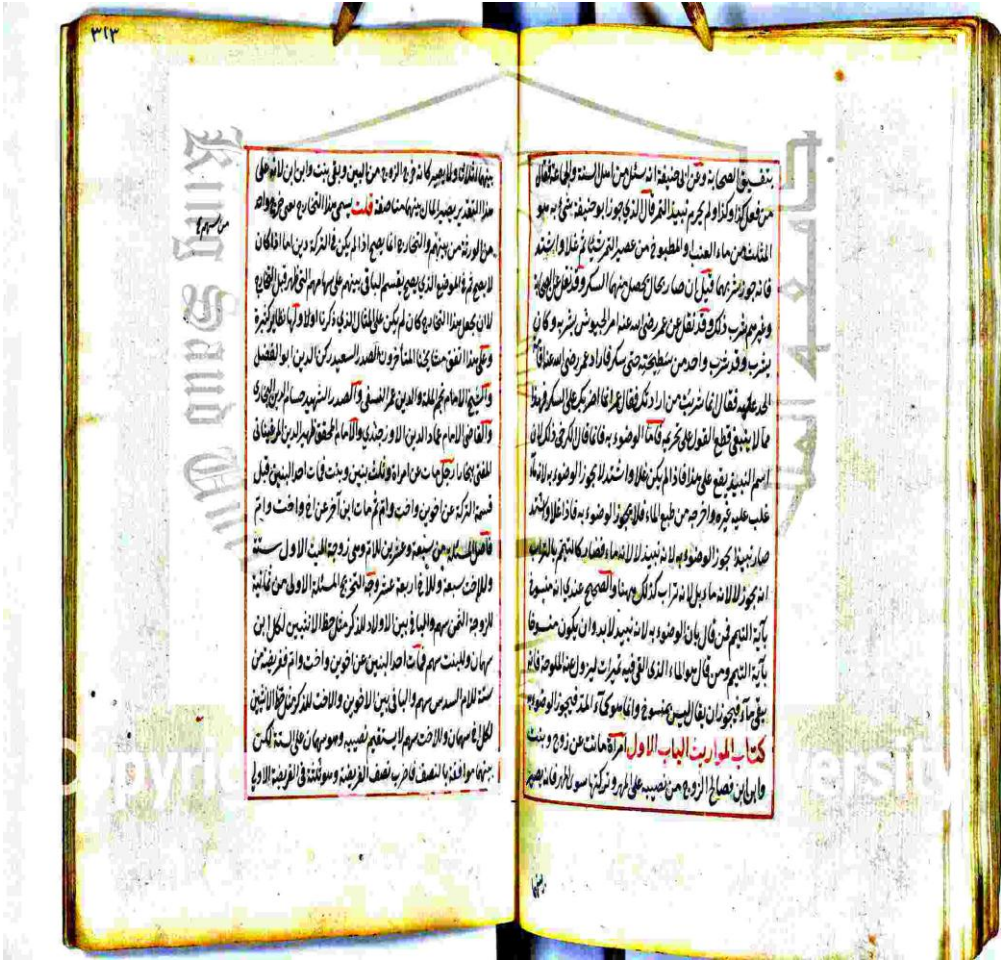 بتفسيق الصحابة وعن ابي حنيفة انه سئل من اهل السنة والجماعة فقال
من فعل كذا وكذا ولم يحرم نبيذ التمر قال الذي جوز ابو حنيفة شربه هو
المثلث من ماء العنب والمطبوخ من عصير التمر اذا غلا واشتد
فانه جوز شربهما قيل ان صار بحال يحصل منهما السكر وقد نقل عن الصحابة
وغيرهم شرب ذلك وقد نقل عن عمر رضي الله عنه امر الجيوش بشربه وكان
يشرب وقد شرب واحد من سطيحته حتى سكر فاراد عمر رضي الله عنه اقامة
الحد عليه فقال انما شربت من اداوتك فقال عمر انما اضربك على السكر فهذا
مما لا ينبغي قطع القول على تحريمه فاما الوضوء به فانما قال الكرخي ذلك لان
اسم النبيذ يقع على هذا فاذا لم يكن غلا واشتد لا يجوز الوضوء به لانه
غلب عليه غيره واخرجه من طبع الماء فلا يجوز الوضوء به فاذا غلا واشتد
صار نبيذا يجوز الوضوء به لانه نبيذ لا لانه ماء فصار كالتيمم بالتراب
انه يجوز لا لانه ماء بل لانه تراب كذلك ههنا والصحيح عندي انه منسوخ
بآية التيمم فمن قال بان الوضوء به لانه نبيذ لابد وان يكون منسوخا
بآية التيمم ومن قال هو الماء الذي القي فيه تميرات ليزول عنه الملوحة فانه
بقي ماء فيجوز ان يقال ليس بمنسوخ وانما هو كماء المد فيجوز الوضوء به
كتاب المواريث الباب الاول امرأة ماتت عن زوج وبنت
وابن ابن فصالح الزوج من نصيبه على المهر وتركتها سوى المهر فانه يصير
بينهما
٣١٣
بينهما اثلاثا ولما يصير كانه خرج الزوج من البين وبقي بنت وابن ابن لانه على
هذا التقدير يصير المال بينهما مناصفة قلت يسمى هذا التخارج يعني خروج واحد
من الورثة من بينهم والتخارج انما يصح اذا لم يكن في التركة دين اما اذا كان
لا يصح ثم في الموضع الذي يصح يقسم الباقي بينهم على سهامهم التي ظهر قبل التخارج
لا ان يجعل هذا التخارج كان لم يكن على المثال الذي ذكرنا اولا ولها نظائر كثيرة
وعلى هذا اتفق مشايخنا المتأخرون الصدر السعيد ركن الدين ابو الفضل
والشيخ الامام نجم الملة والدين عمر النسفي والصدر الشهيد حسام الدين البخاري
والقاضي الامام عماد الدين الاوزجندي والامام المحقق ظهير الدين المرغيناني
المفتي ببخارا رجل مات عن امرأة وثلث بنين وبنت فمات احد البنين قبل
قسمة التركة عن اخوين واخت وام ثم مات ابن آخر عن اخ واخت وام
فاصل المسئلة من سبعة وعشرين للام وهي زوجة الميت الاول ستة
وللاخت سبعة وللاخ اربعة عشر وجه التخريج المسئلة الاولى من ثمانية
للزوجة الثمن سهم والباقي بين الاولاد للذكر مثل حظ الانثيين لكل ابن
سهمان وللبنت سهم فمات احد البنين عن اخوين واخت وام ففريضته من
ستة للام السدس سهم والباقي بين الاخوين والاخت للذكر مثل حظ الانثيين
لكل اخ سهمان والاخت سهم لا يستقيم نصيبه وهو سهمان على ستة لكن
بينهما موافقة بالنصف فاضرب نصف الفريضة وهو ثلثة في الفريضة الاولى
King Saud University
Copyright University